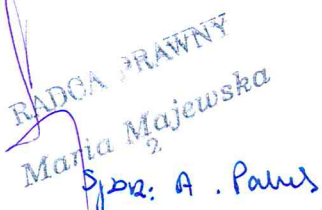 RADCA PRAWNY
Maria Majewska
2.
Spor: A.